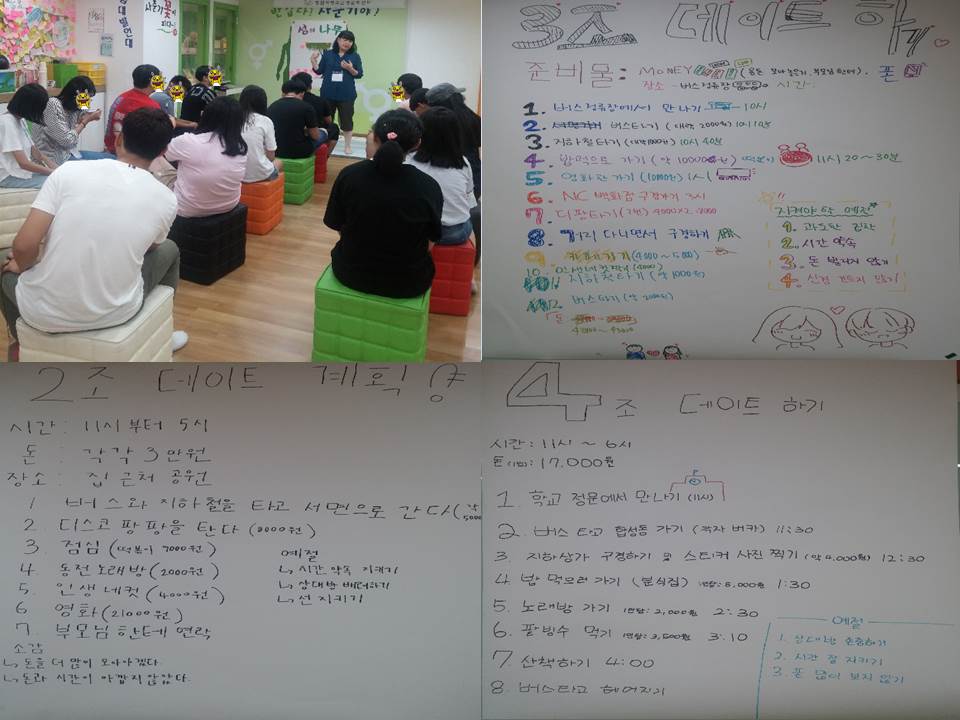 3조 데이트 하기
준비물: MONEY (용돈 모아놓은거, 부모님찬스), 폰
장소 - 버스정류장 시간:
1. 버스정류장에서 만나기 10시
2. 버스타기 (대략 2000원) 10시 10분
3. 지하철타기 10시 40분
4. 밥먹으로 가기 떡볶이 11시 20~30분
5. 영화관 가기 (10000원) 1시
6. NC 백화점 구경하기 3시
7. 디팡타기 (2번) 4000x2=8000
8. 거리 다니면서 구경하기
9. 카페가기 (4000~5000)
10. 인생네컷찍기 (4000)
지하철타기 (약 1000원)
버스타기 (약 2000원)
돈
지켜야 할 예절
1. 과도한 긴장
2. 시간 약속
3. 돈 빌리지 않기
4. 신경 건드지 않기
2조 데이트 계획
시간: 11시부터 5시
돈 : 각각 3만원
장소: 집 근처 공원
1 버스와 지하철을 타고 서면으로 간다
2 디스코 팡팡을 탄다 (8000원)
3. 점심 (떡볶이 7000원)
4. 동전 노래방 (2000원)
5. 인생 네컷 (4000원)
6 영화 (21000원)
7. 부모님 한테 연락
예절
↳ 시간 약속 지키기
↳ 상대방 배려하기
↳ 선 지키기
소감
↳ 돈을 더 많이 모아야겠다.
↳ 돈과 시간이 아깝지 않았다.
4조 데이트 하기
시간: 11시 ~ 6시
돈(1인): 17.000원
1. 학교 정문에서 만나기 (11시)
2. 버스 타고 합성동 가기 (각자 버카) 11:30
3. 지하상가 구경하기 및 스티커 사진 찍기 (약 4.000원) 12:30
4 밥 먹으러 가기 (분식집) 인당: 5,000원 1:30
5. 노래방 가기 인당: 2,000원 2:30
6. 팥빙수 먹기 인당: 3,500원 3:10
7 산책하기 4:00
8. 버스타고 헤어지기
예절
1. 상대방 존중하기
2. 시간 잘 지키기
3. 폰 많이 보지 않기